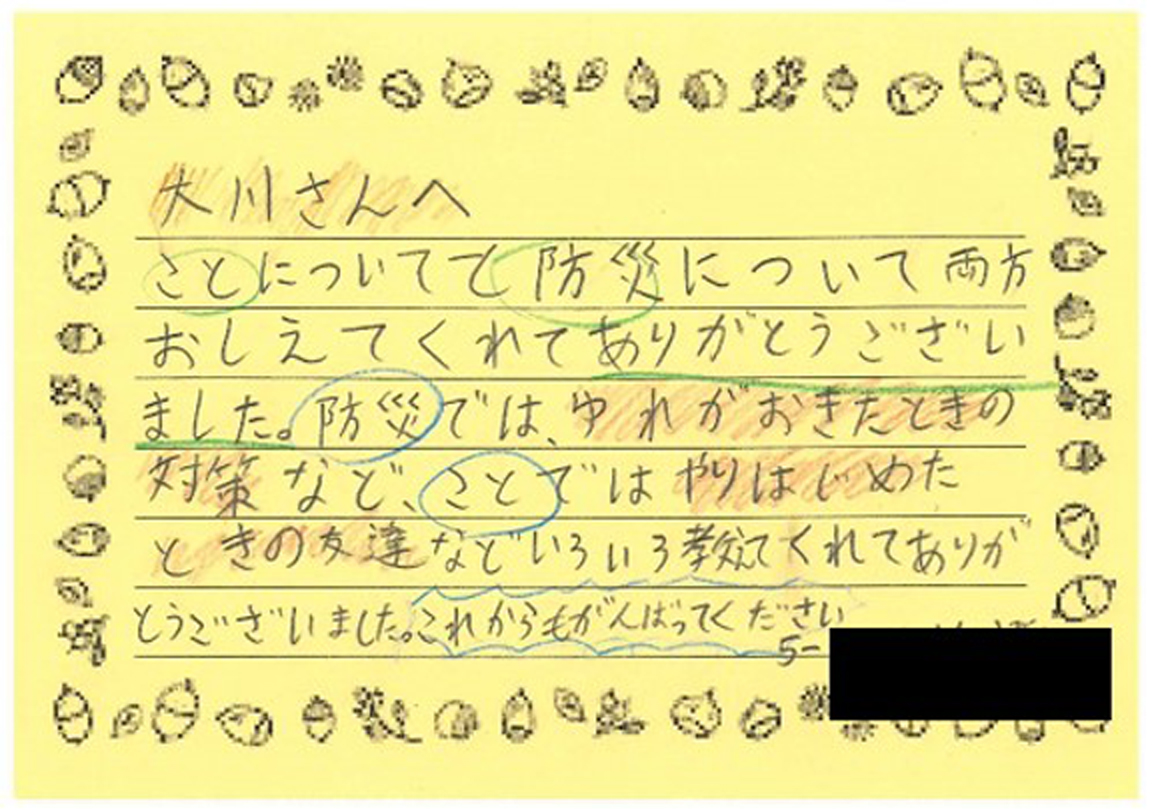 大川さんへ
ことについてと防災について両方
おしえてくれてありがとうござい
ました。防災では、ゆれがおきたときの
対策など、ことではやりはじめた
ときの友達などいろいろ教えてくれてありが
とうございました。これからもがんばってください
5-